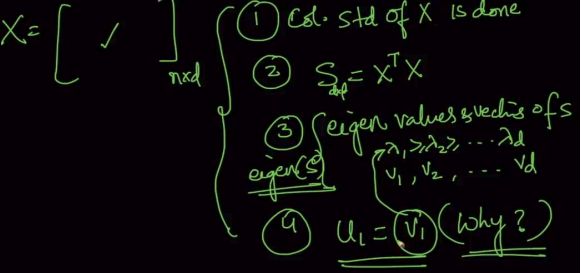 X = [ ✓ ] n×d
① Col. std of X is done
② S d×d = XᵀX
③ eigen values & vectors of S
λ₁ ≥ λ₂ ≥ .... λd
eigen(S)
V₁, V₂, .... Vd
④ U₁ = V₁ (Why?)